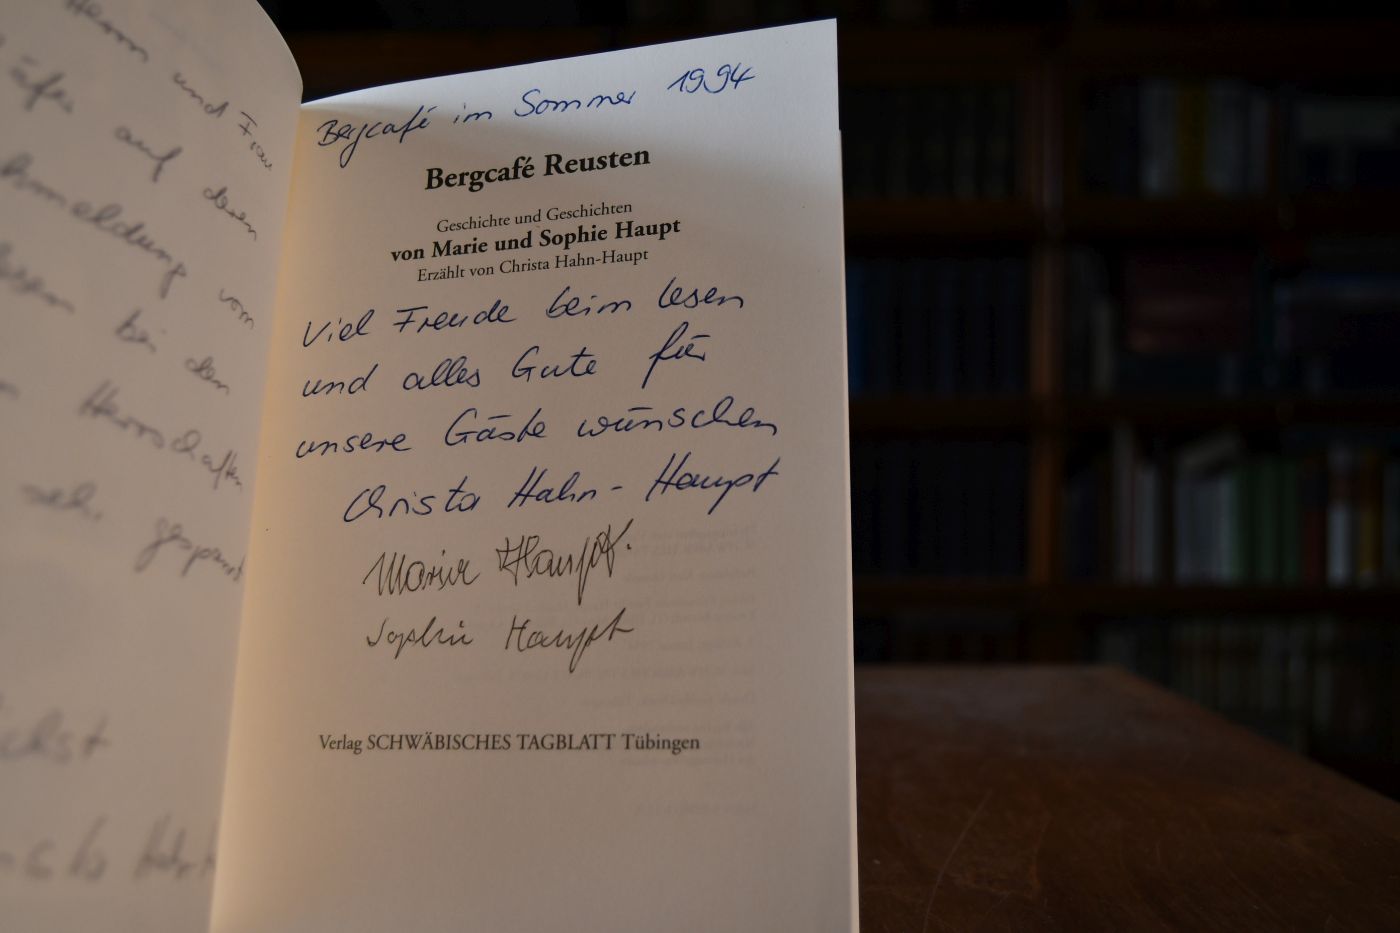 Herrn und Frau
auf deren
vom
bei den
Herrschaften
gespannt
Bergcafé im Sommer 1994
Bergcafé Reusten
Geschichte und Geschichten
von Marie und Sophie Haupt
Erzählt von Christa Hahn-Haupt
Viel Freude beim lesen
und alles Gute für
unsere Gäste wünschen
Christa Hahn-Haupt
Marie Haupt.
Sophie Haupt
Verlag SCHWÄBISCHES TAGBLATT Tübingen